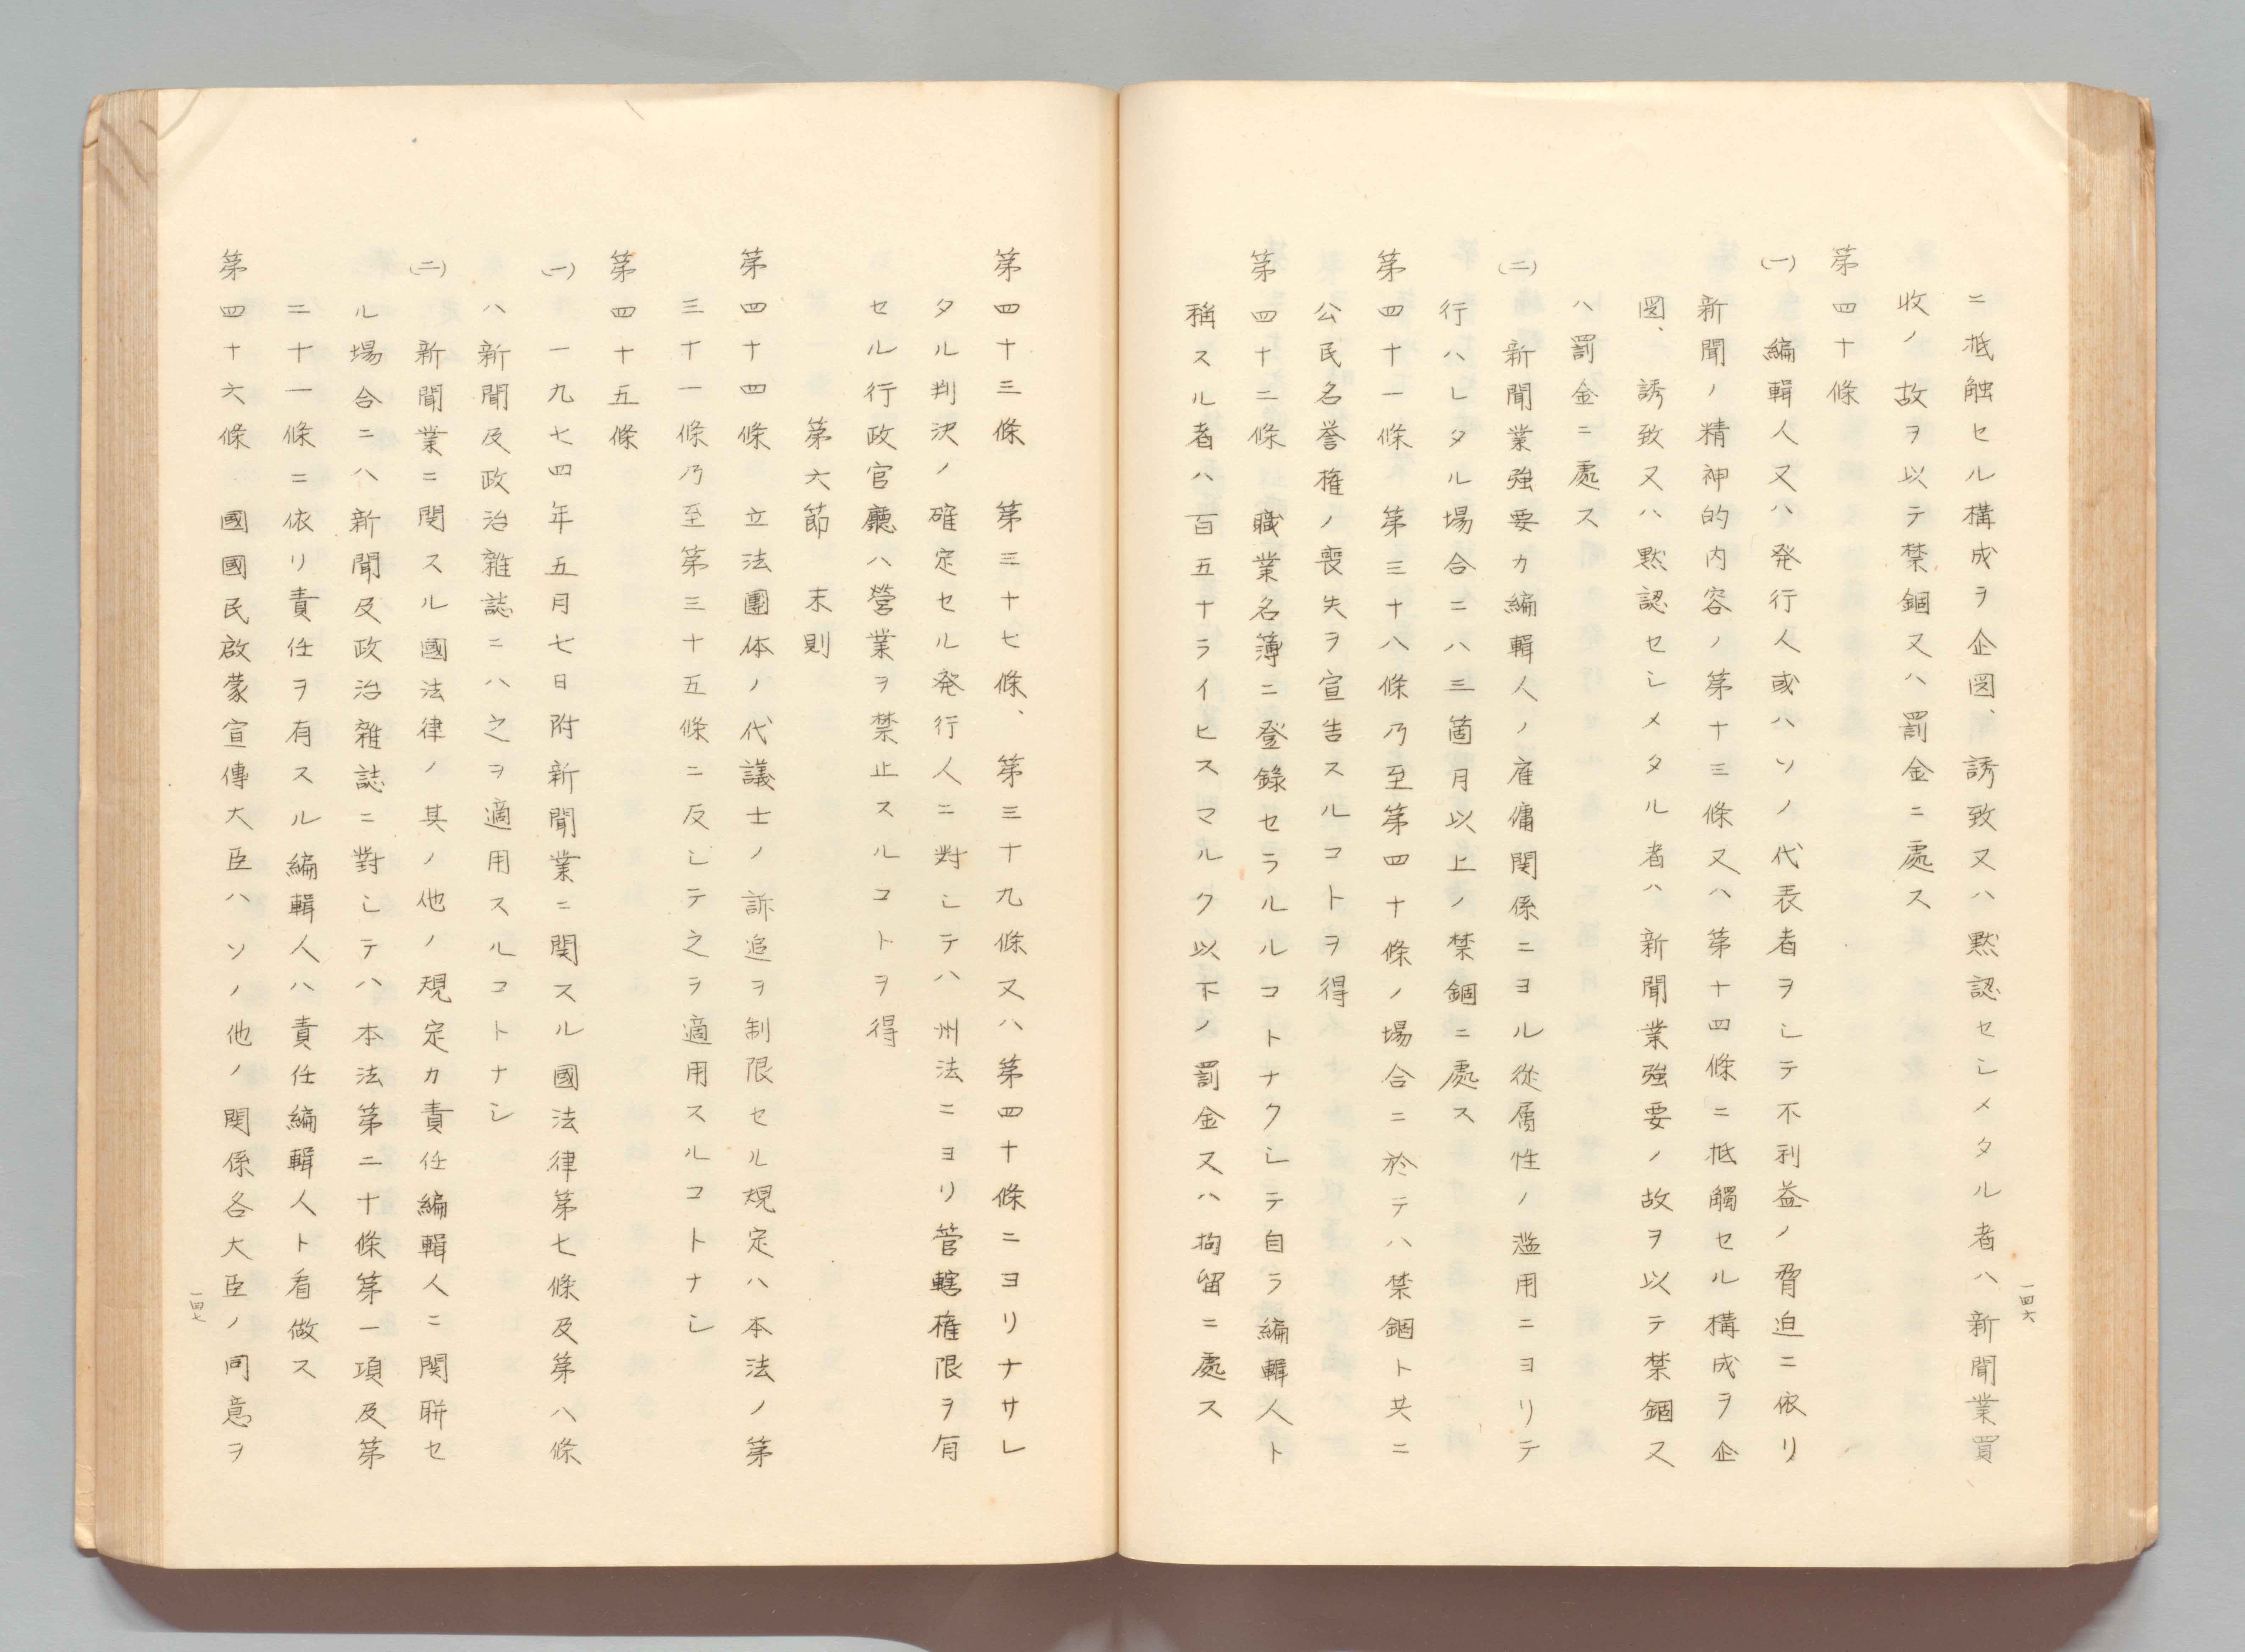 ニ抵触セル構成ヲ企図、誘致又ハ黙認セシメタル者ハ新聞業買
収ノ故ヲ以テ禁錮又ハ罰金ニ處ス
第四十條
(一)　編輯人又ハ発行人或ハソノ代表者ヲシテ不利益ノ脅迫ニ依リ
新聞ノ精神的内容ノ第十三條又ハ第十四條ニ抵觸セル構成ヲ企
図、誘致又ハ黙認セシメタル者ハ新聞業強要ノ故ヲ以テ禁錮又
ハ罰金ニ處ス
(二)　新聞業強要カ編輯人ノ雇傭関係ニヨル従属性ノ濫用ニヨリテ
行ハレタル場合ニハ三箇月以上ノ禁錮ニ處ス
第四十一條　第三十八條乃至第四十條ノ場合ニ於テハ禁錮ト共ニ
公民名誉権ノ喪失ヲ宣告スルコトヲ得
第四十二條　職業名簿ニ登錄セラルルコトナクシテ自ラ編輯人ト
稱スル者ハ百五十ライヒスマルク以下ノ罰金又ハ拘留ニ處ス
一四六
第四十三條　第三十七條、第三十九條又ハ第四十條ニヨリナサレ
タル判決ノ確定セル発行人ニ對シテハ州法ニヨリ管轄権限ヲ有
セル行政官廳ハ營業ヲ禁止スルコトヲ得
第六節　末則
第四十四條　立法團体ノ代議士ノ訴追ヲ制限セル規定ハ本法ノ第
三十一條乃至第三十五條ニ反シテ之ヲ適用スルコトナシ
第四十五條
(一)　一九七四年五月七日附新聞業ニ関スル國法律第七條及第八條
ハ新聞及政治雑誌ニハ之ヲ適用スルコトナシ
(二)　新聞業ニ関スル國法律ノ其ノ他ノ規定カ責任編輯人ニ関聯セ
ル場合ニハ新聞及政治雑誌ニ對シテハ本法第二十條第一項及第
二十一條ニ依リ責任ヲ有スル編輯人ハ責任編輯人ト看做ス
第四十六條　國國民啟蒙宣傳大臣ハソノ他ノ関係各大臣ノ同意ヲ
一四七